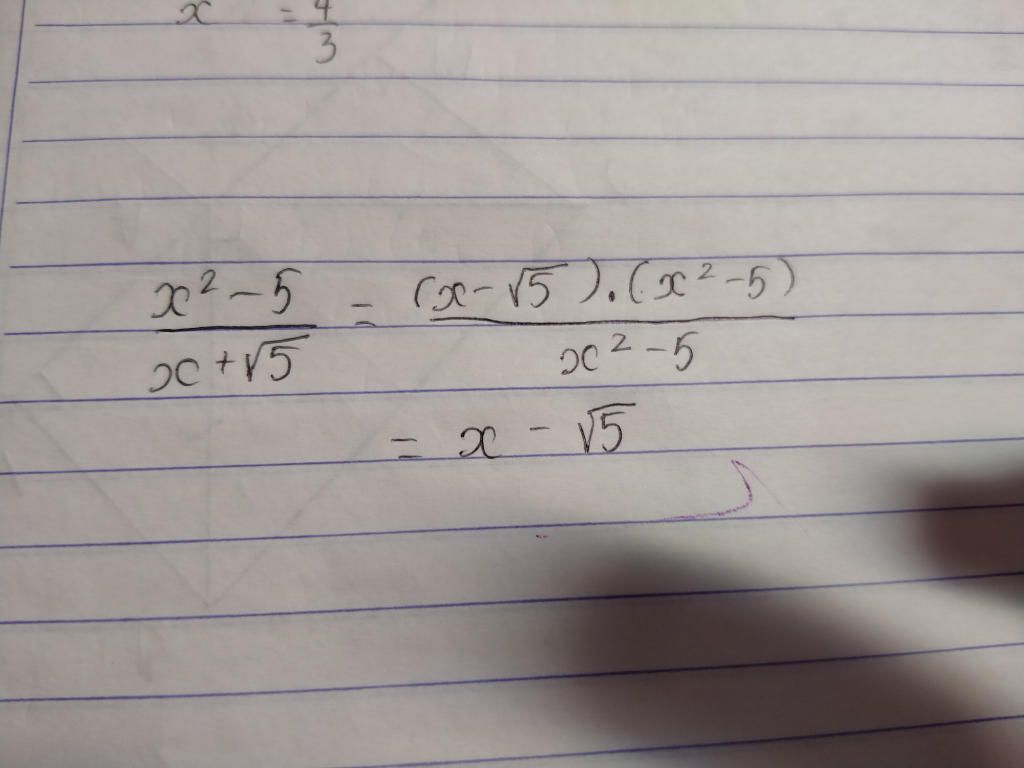 x = 4/3
x² - 5 / x + √5 = (x - √5).(x² - 5) / x² - 5
= x - √5